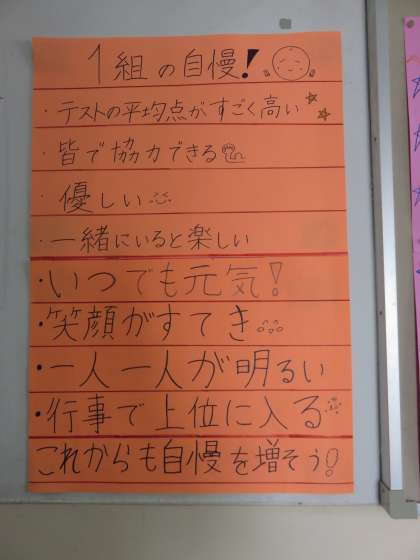 1組の自慢!
・テストの平均点がすごく高い
・皆で協力できる
・優しい
・一緒にいると楽しい
・いつでも元気!
・笑顔がすてき
・一人一人が明るい
・行事で上位に入る
これからも自慢を増そう!